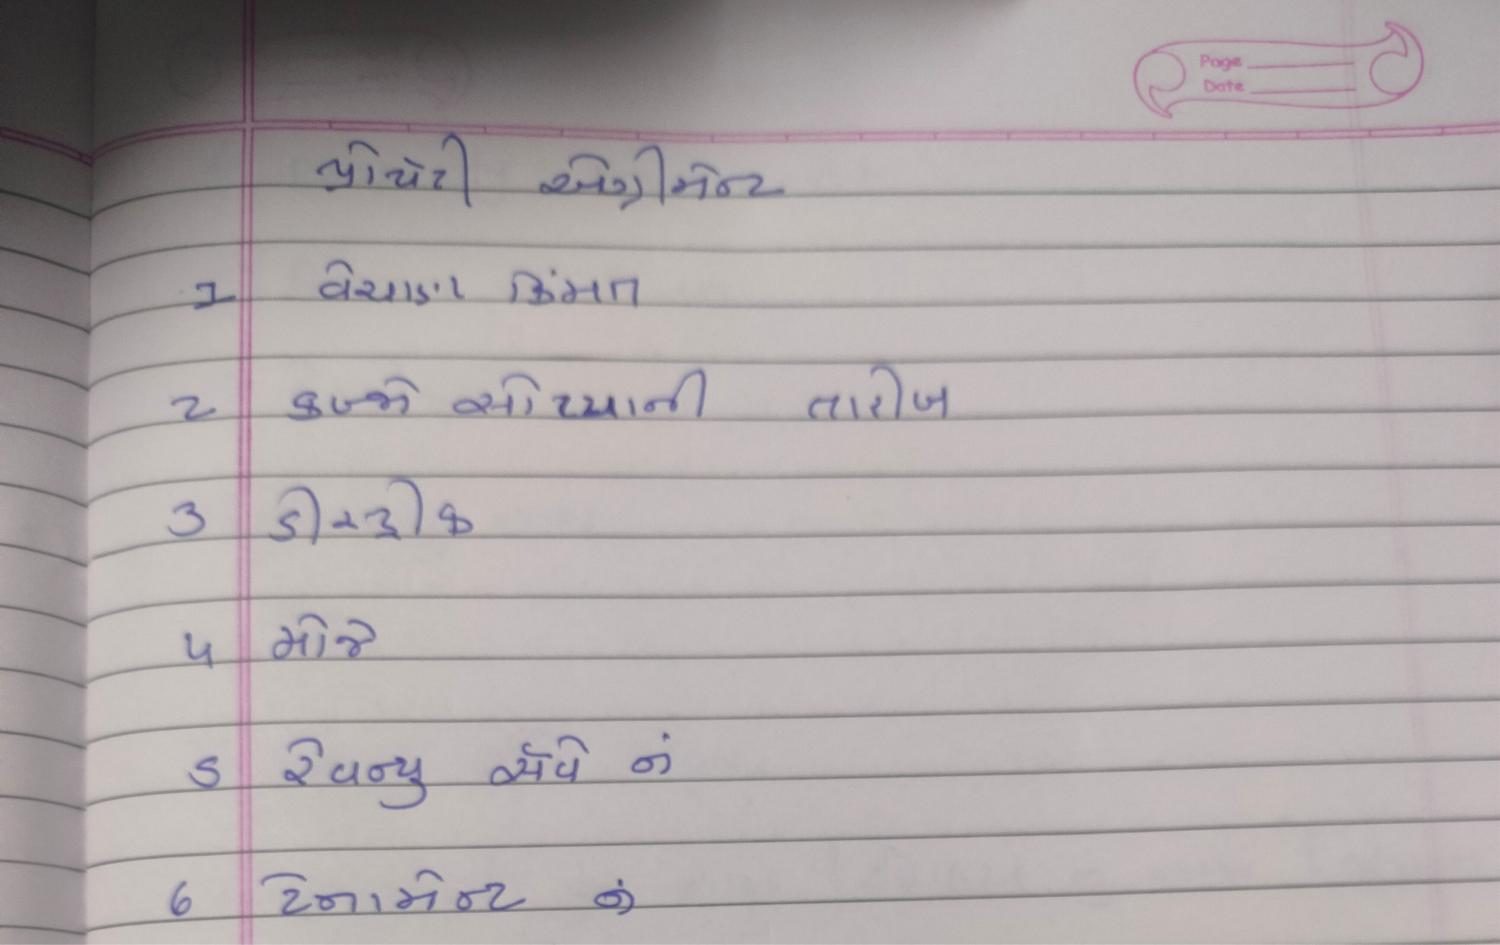 Page
Date
પ્રોપર્ટી એગ્રીમેન્ટ
1 વેચાણ કિંમત
2 કબ્જો સોપ્યાની તારીખ
3 ડીસ્ટ્રીક
4 મોજે
5 રેવન્યુ સર્વે નં
6 ટેનામેન્ટ નં